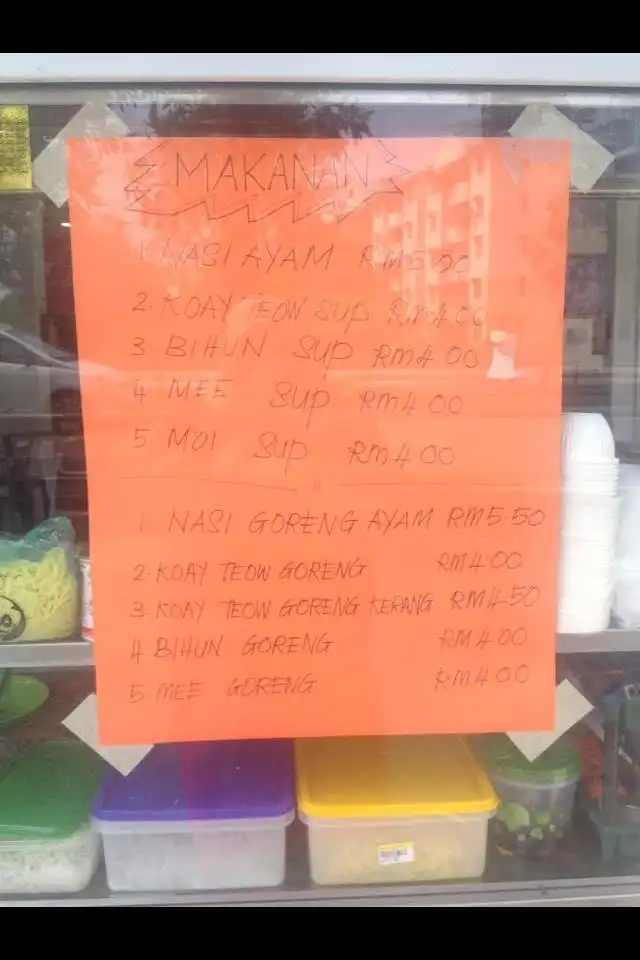 MAKANAN
1. NASI AYAM RM5.00
2. KOAY TEOW SUP RM4.00
3 BIHUN SUP RM4.00
4 MEE SUP RM4.00
5. MOI SUP RM4.00
1 NASI GORENG AYAM RM5.50
2. KOAY TEOW GORENG RM4.00
3 KOAY TEOW GORENG KERANG RM4.50
4 BIHUN GORENG RM4.00
5 MEE GORENG RM4.00